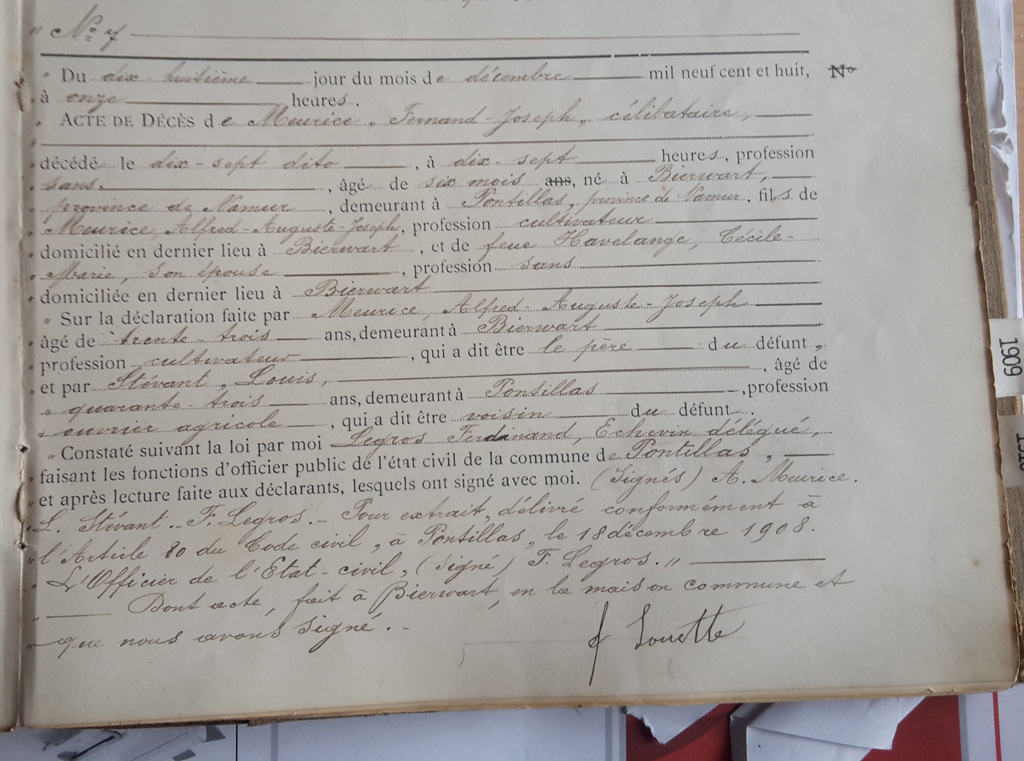 " N° 7
" Du dix-huitième jour du mois de décembre mil neuf cent et huit, N°
à onze heures.
ACTE DE DÉCÈS de Meurice, Fernand-Joseph, célibataire,
décédé le dix-sept dito, à dix-sept heures, profession
sans, âgé de six mois ans, né à Bierwart,
province de Namur, demeurant à Pontillas, province de Namur, fils de
Meurice, Alfred-Auguste-Joseph, profession cultivateur
domicilié en dernier lieu à Bierwart, et de feue Havelange, Cécile-
Marie, son épouse, profession sans
domiciliée en dernier lieu à Bierwart
" Sur la déclaration faite par Meurice, Alfred-Auguste-Joseph
âgé de trente-trois ans, demeurant à Bierwart
profession cultivateur, qui a dit être le père du défunt,
et par Stévant, Louis, âgé de
quarante-trois ans, demeurant à Pontillas, profession
ouvrier agricole, qui a dit être voisin du défunt.
" Constaté suivant la loi par moi Legros Ferdinand, Echevin délégué,
faisant les fonctions d'officier public de l'état civil de la commune de Pontillas,
et après lecture faite aux déclarants, lesquels ont signé avec moi. (Signés) A. Meurice.
L. Stévant.- F. Legros.- Pour extrait, délivré conformément à
l'Article 80 du Code civil, à Pontillas, le 18 décembre 1908.
L'Officier de l'Etat-civil, (Signé) F. Legros. "
Dont acte, fait à Bierwart, en la maison commune et
que nous avons signé.-
1909